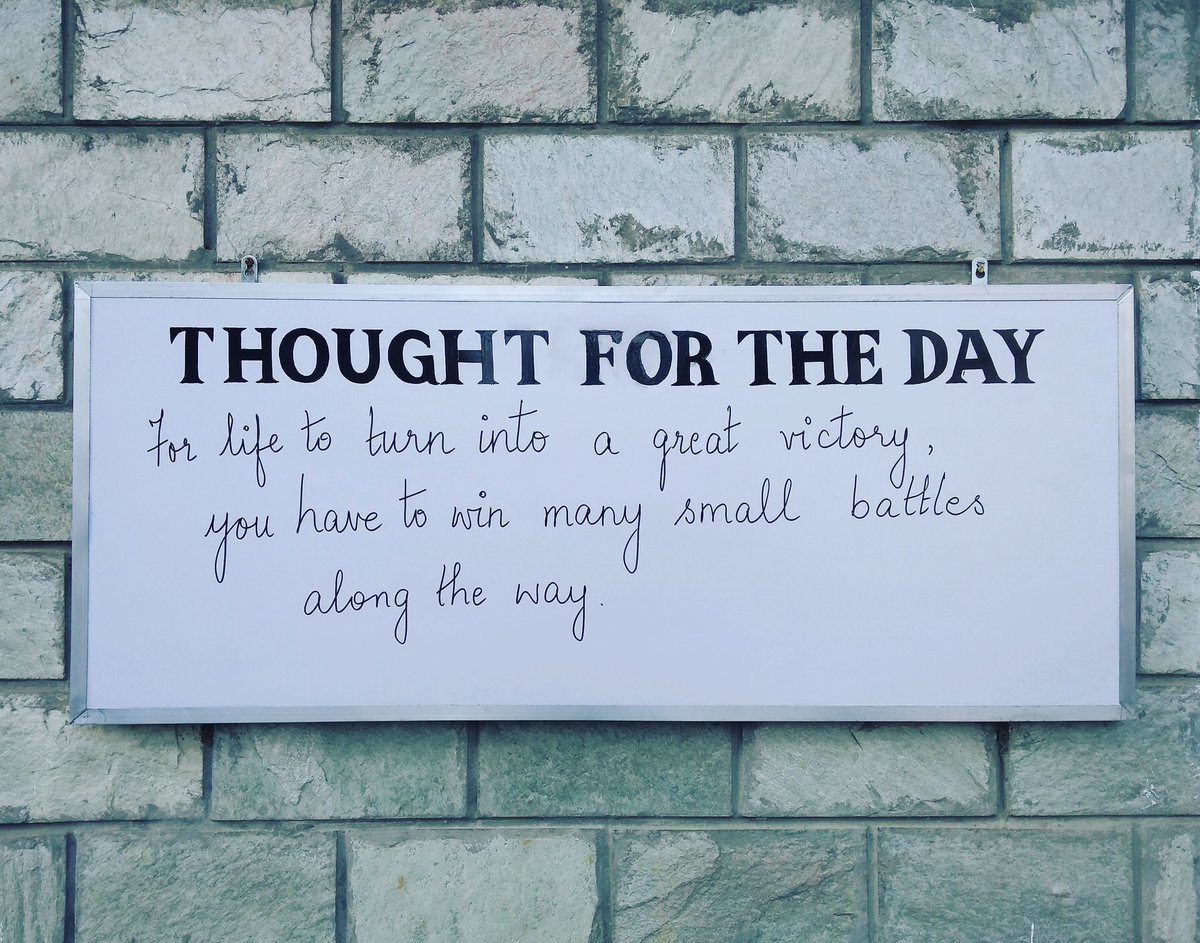 THOUGHT FOR THE DAY
For life to turn into a great victory,
you have to win many small battles
along the way.